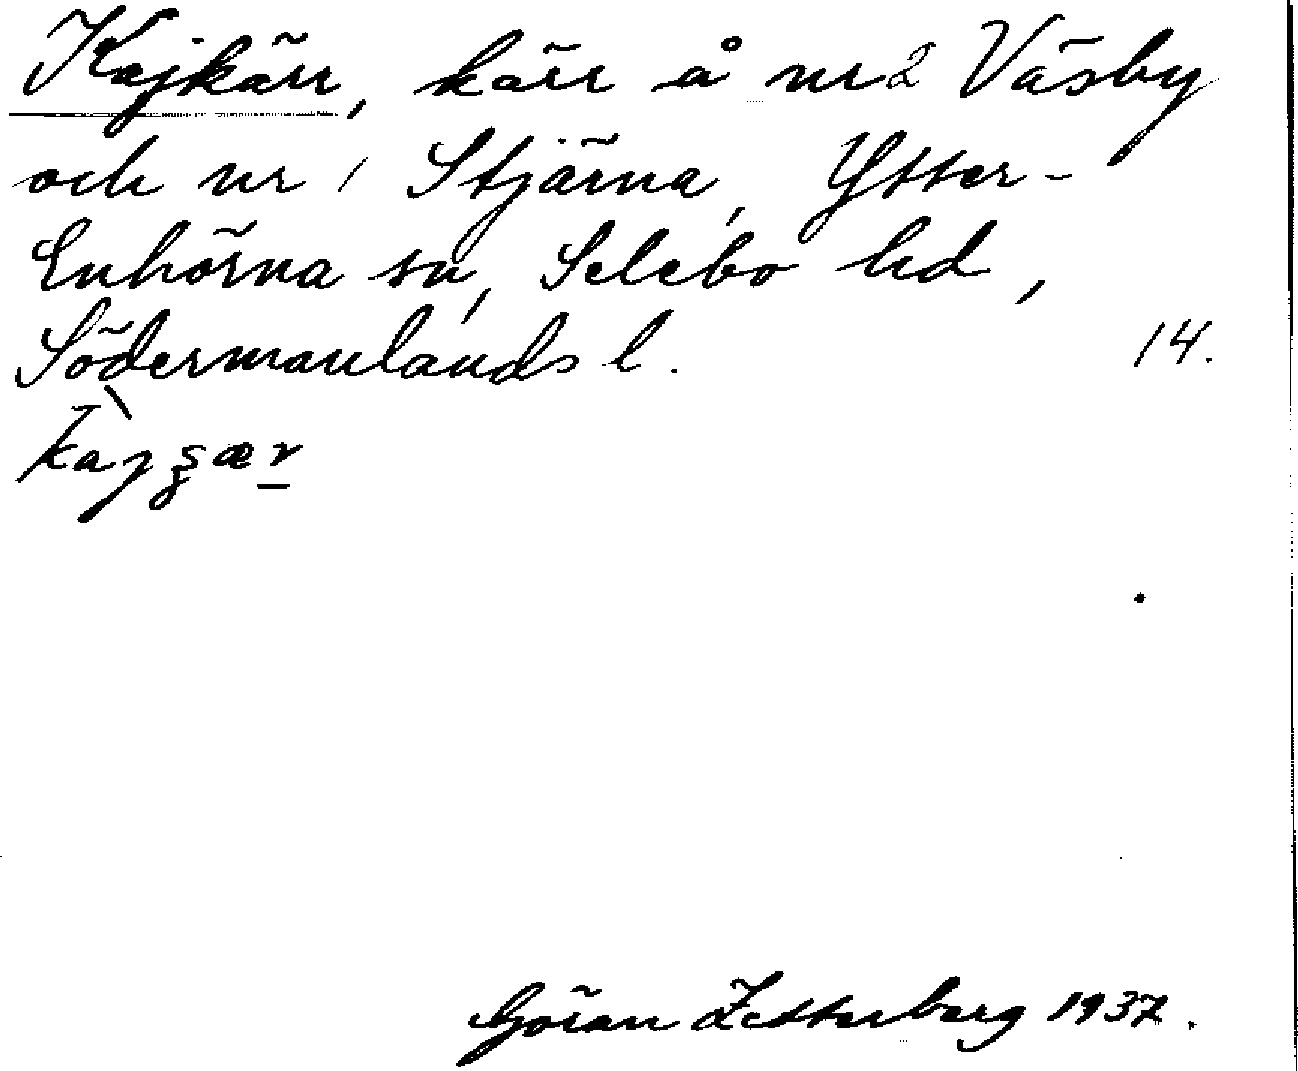 Kajkärr, kärr å nr 2 Väsby
och nr 1 Stjärna, Ytter-
Enhörna sn, Selebo hd,
Södermanlands l. 14.
Göran Zetterberg 1937.